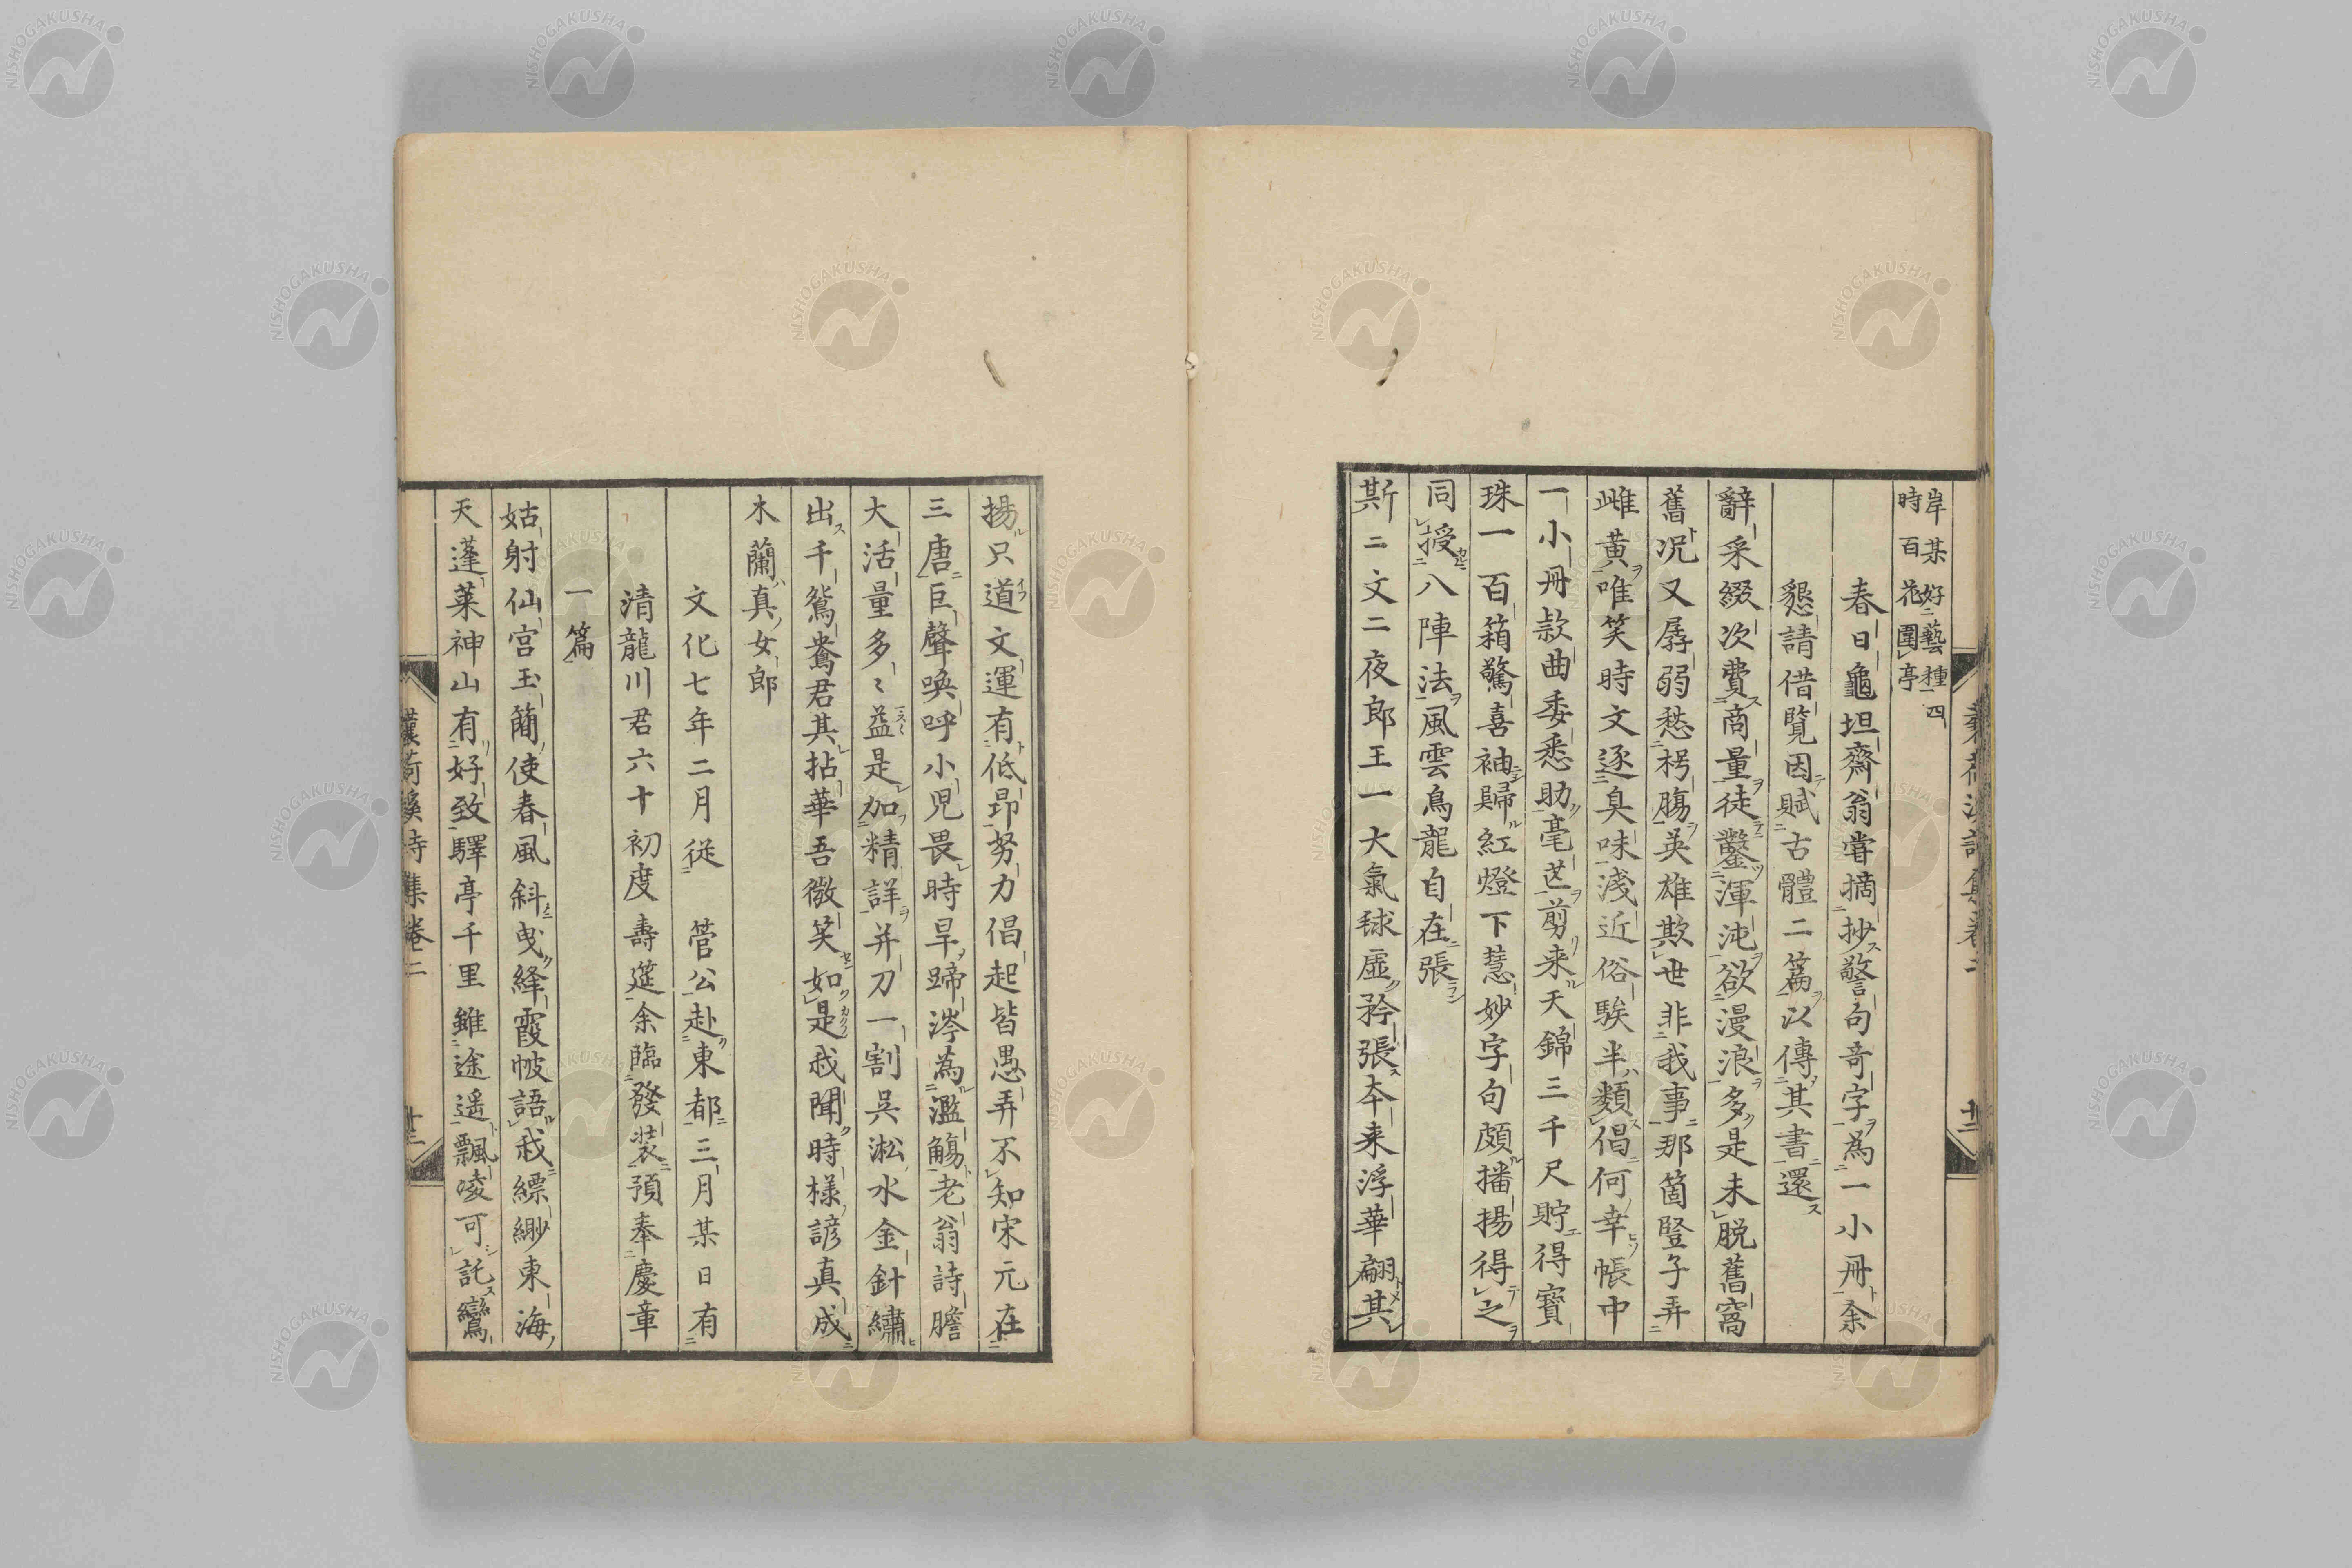 岸某好藝種四
時百花圍亭
春日龜坦齋翁嘗摘抄警句奇字為一小冊余
懇請借覽因賦古體二篇以傳其書還
辭采綴次費商量徒鑿渾沌欲漫浪多是未脫舊窩
舊况又孱弱愁枵腸英雄欺世非我事那箇豎子弄
雌黃唯笑時文逐臭味淺近俗騃半類倡何幸帳中
一小冊款曲委悉助毫芒剪来天錦三千尺貯得寶
珠一百箱驚喜袖歸紅燈下慧妙字句頗播揚得之
同授八陣法風雲鳥龍自在張
斯二文二夜郎王一大氣毬虛矜張夲来浮華翩其
揚只道文運有低昻努力倡起皆愚弄不知宋元在
三唐巨聲喚呼小児畏時旱蹄涔為濫觴老翁詩膽
大活量多〻益是加精詳并刀一割吳淞水金針繡
出千鴛鴦君其拈華吾微笑如是我聞時樣諺真成
木蘭真女郎
文化七年二月從　菅公赴東都三月某日有
清龍川君六十初度壽筵余臨發裝預奉慶章
一篇
姑射仙宮玉簡使春風斜曳絳霞帔語我縹緲東海
天蓬莱神山有好致驛亭千里雖途遥飄崚可託鸞
蘘荷溪詩集卷二
十三